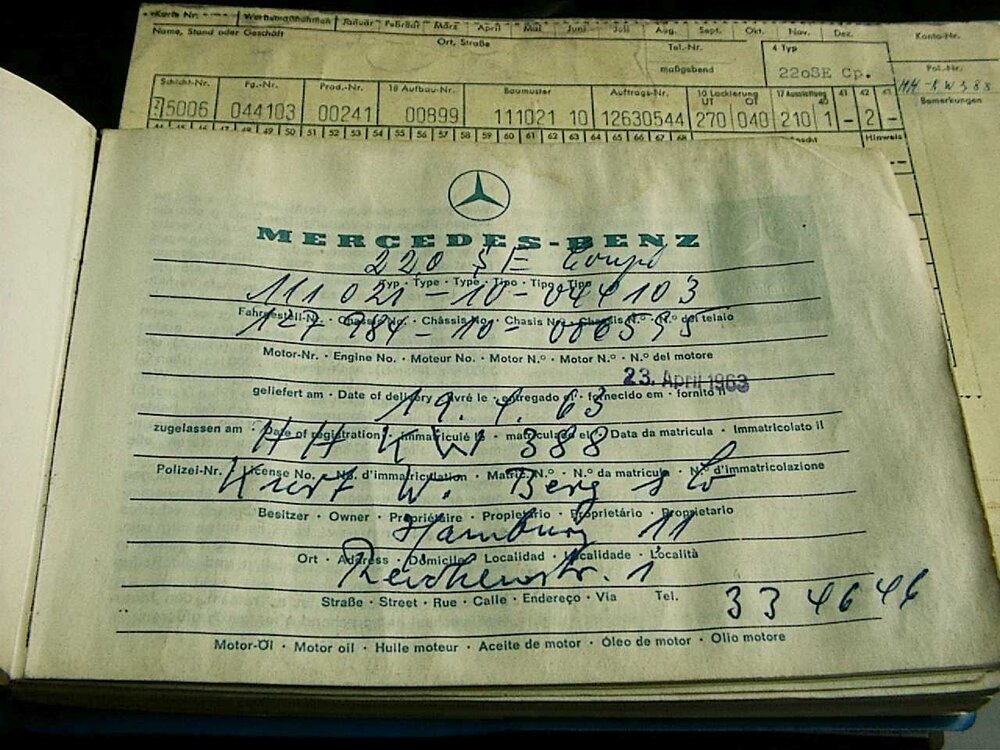 Karte Nr. Wertmaßnahmen Januar Februar März April Mai Juni Juli Aug. Sept. Okt. Nov. Dez.
Name, Stand oder Geschäft Ort, Straße Tel.-Nr. maßgebend 4 Typ Konto-Nr.
220SE Cp. Pol.-Nr.
Schicht-Nr. Fg.-Nr. Prod.-Nr. 18 Aufbau-Nr. Baumuster Auftrags-Nr. 10 Lackierung 17 Ausstattung 40 41 42 43 Bemerkungen
UT OT
5006 044103 00241 00899 111021 10 12630544 270 040 210 1 - 2 -
44 45 46 47 48 49 50 51 52 53 54 55 56 57 58 59 60 61 62 63 64 65 66 67 68 Hinweis
MERCEDES-BENZ
220 SE Coupé
Typ · Type · Type · Tipo · Tipo · Tipo
111 021 - 10 - 044 103
Fahrgestell-Nr. · Chassis No. · Châssis No. · Chasis N.º · Chassis N.º · N.º del telaio
127 984 - 10 - 000593
Motor-Nr. · Engine No. · Moteur No. · Motor N.º · Motor N.º · N.º del motore
23. April 1963
geliefert am · Date of delivery · livré le · entregado el · fornecido em · fornito il
19. 4. 63
zugelassen am · Date of registration · immatriculé le · matriculado el · Data da matricula · Immatricolato il
HH KW 388
Polizei-Nr. · License No. · No. d'immatriculation · Matric. N.º · N.º da matricula · N.º d'immatricolazione
Kurt W. Berg & Co
Besitzer · Owner · Propriétaire · Propietario · Proprietário · Proprietario
Hamburg 11
Ort · Address · Domicile · Localidad · Localidade · Località
Reichenstr. 1
Straße · Street · Rue · Calle · Endereço · Via Tel. 33 46 46
Motor-Öl · Motor oil · Huile moteur · Aceite de motor · Óleo de motor · Olio motore